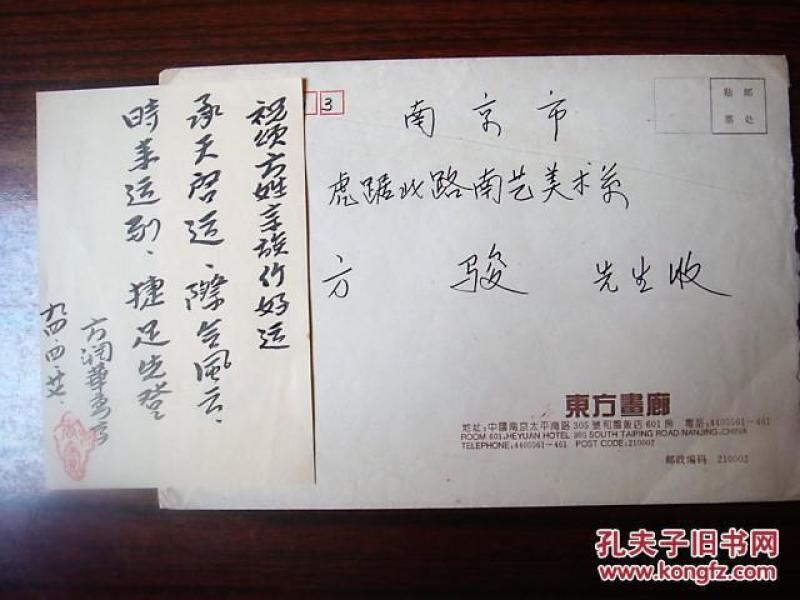 祝颂方姓宗族行好运
承天启运、际会风云、
時来运到、捷足先登
方润華
九四·四·廿
3
南京市
虎踞北路南艺美术系
方 骏 先生收
贴 邮
票 处
東方畫廊
地址:中國南京太平南路305號和園飯店601房 電話:4405561-461
ROOM 601,HEYUAN HOTEL 305 SOUTH TAIPING ROAD NANJING,CHINA
TELEPHONE:4405561-461 POST CODE:210002
邮政编码 210002
孔夫子旧书网
www.kongfz.com